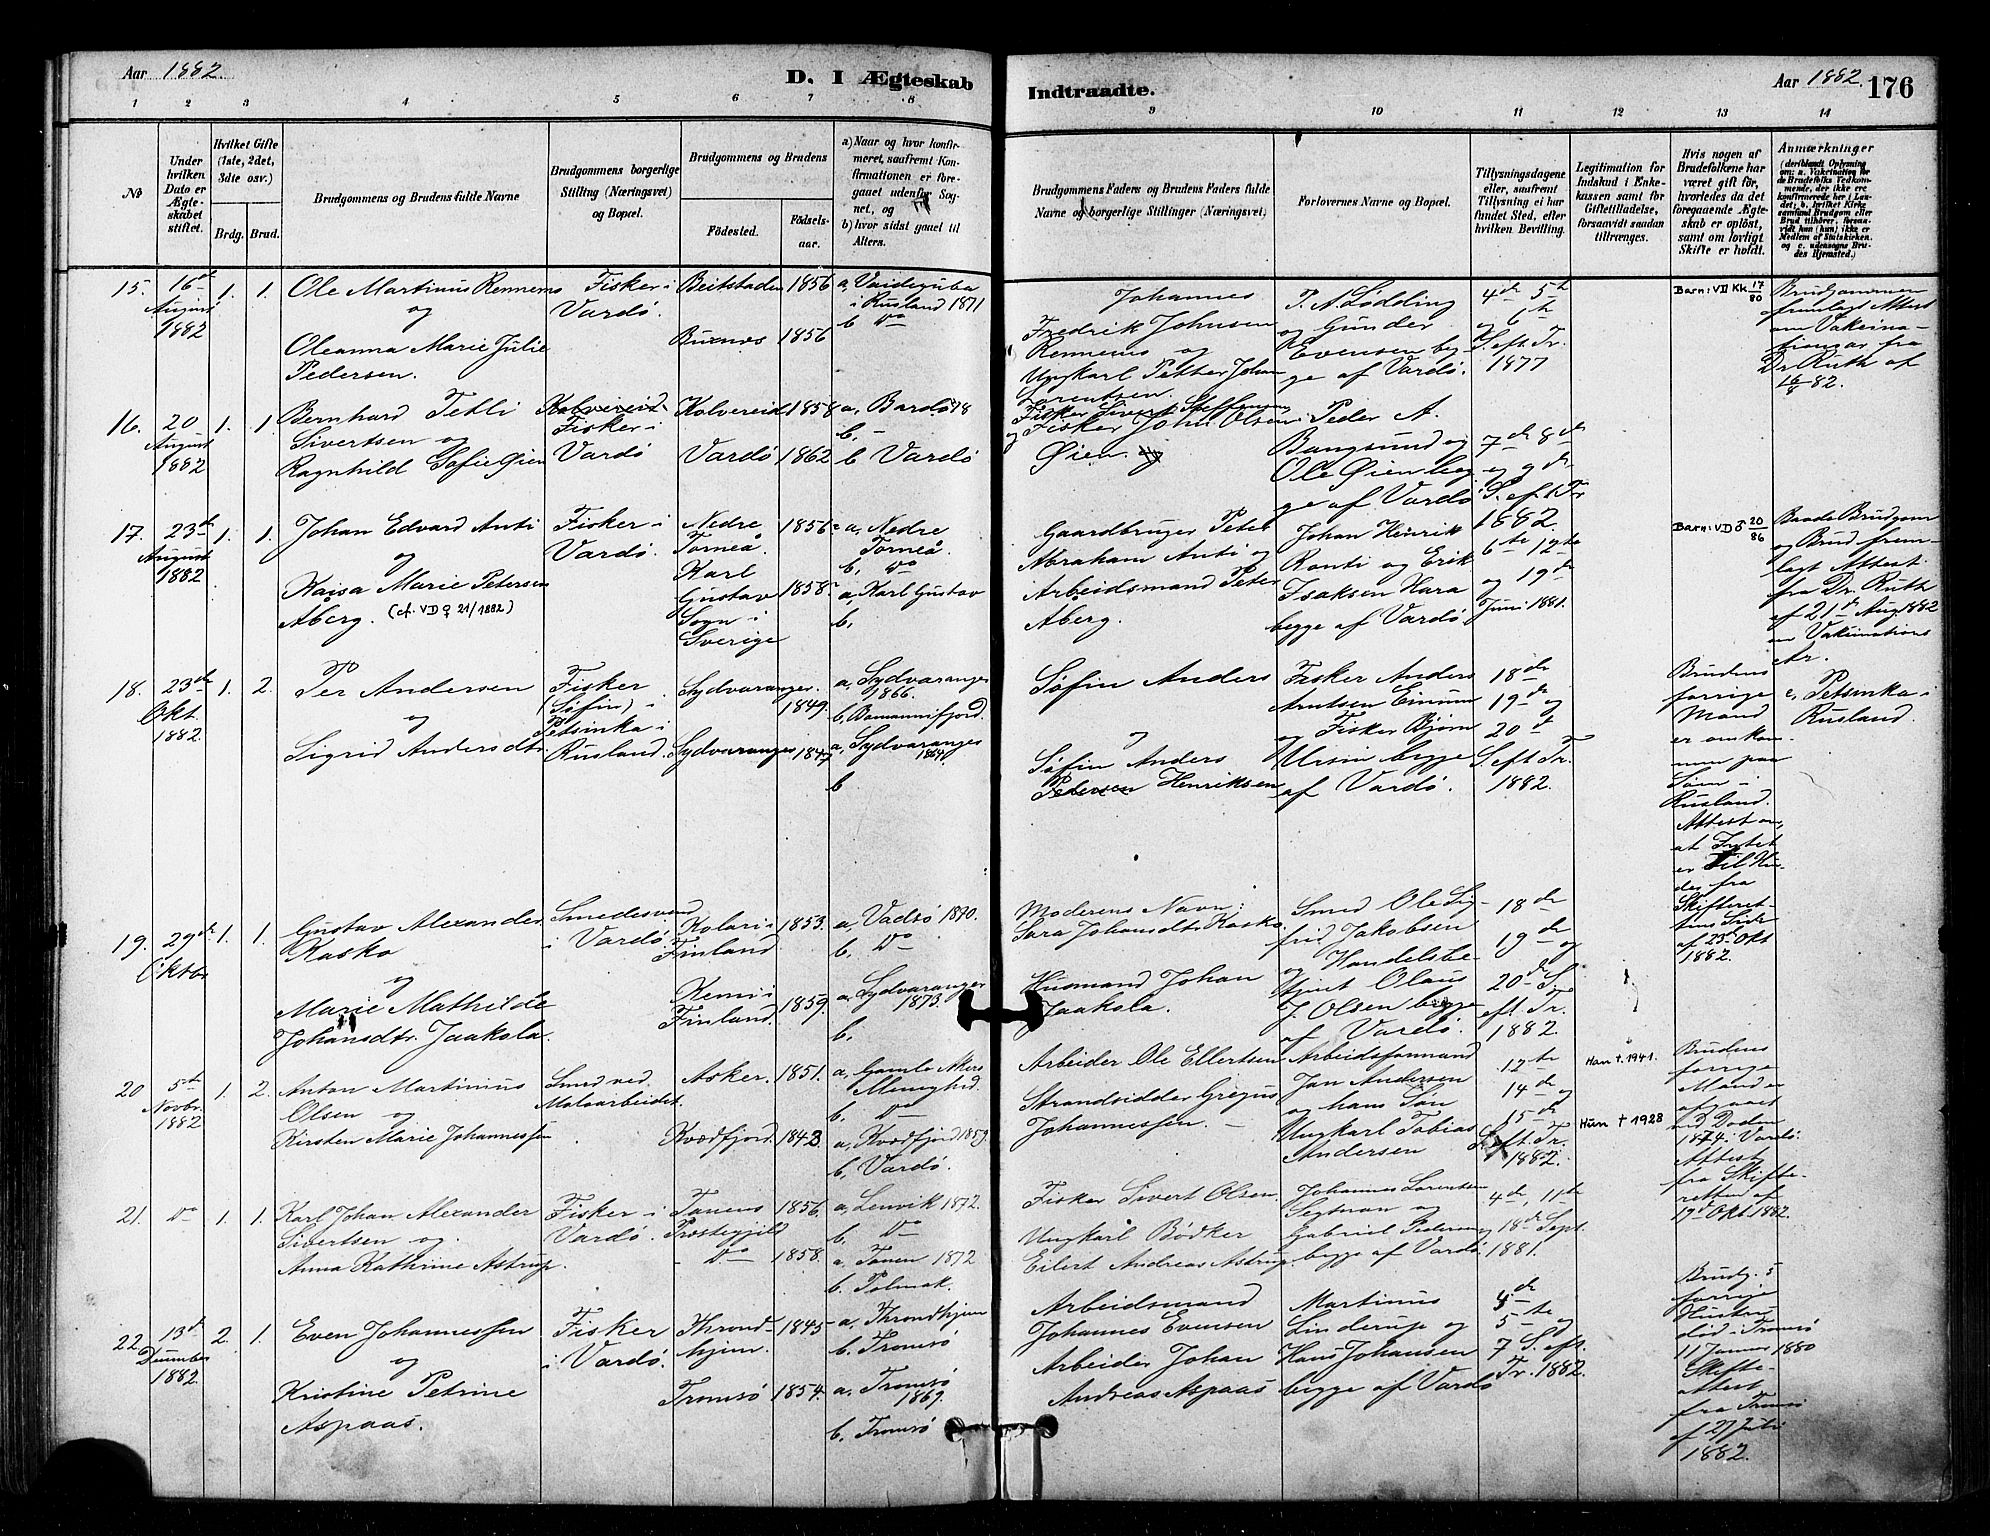 Aar 1882.
D. I Ægteskab
Indtraadte.
Aar 1882.
176
1 2 3 4 5 6 7 8 9 10 11 12 13 14
No
Under hvilken Dato er Ægteskabet stiftet.
Hvilket Gifte (1ste, 2det, 3dte osv.)
Brdg. Brud.
Brudgommens og Brudens fulde Navne
Brudgommens borgerlige Stilling (Næringsvei) og Bopæl.
Brudgommens og Brudens
Födested.
Födselsaar.
a) Naar og hvor konfirmeret, saafremt Konfirmationen er foregaaet udenfor Sognet, og
b) hvor sidst gaaet til Alters.
Brudgommens Faders og Brudens Faders fulde Navne og borgerlige Stillinger (Næringsvei)
Forlovernes Navne og Bopæl.
Tillysningsdagene eller, saafremt Tillysning ei har fundet Sted, efter hvilken Bevilling.
Legitimation for Indskud i Enkekassen samt for Giftetilladelse, forsaavidt saadan tiltrænges.
Hvis nogen af Brudefolkene har været gift för, hvorledes da det foregaaende Ægteskab er oplöst, samt om lovligt Skifte er holdt.
Anmærkninger
15.
16de August 1882
1. 1.
Ole Martinus Rennems
og
Oleanna Marie Julie
Pedersen.
Fisker i
Vardö.
Beitstaden 1856
Buxnes 1856
a, Vaideguba
i Rusland 1871
b Do
Johannes
Fredrik Johnsen
Rennems og
Ungkarl Petter Johan
Lorentsen.
P. A. Lödding
og Gunder
Evensen beg-
ge af Vardö.
4de 5te
og 6te
S. eft. Tr.
1877
Barn: VD Kk 17/80
Brudgommen
fremlagt Attest
om Vakcina-
tionsar fra
Dr. Ruth af
16/8 82.
16.
20 August 1882
1. 1
Bernhard Tetli
Sivertsen og
Ragnhild Sofie Øien
Kolvereid
Fisker i
Vardö
Kolvereid 1858
Vardö 1862
a, Bardö 78
b, -
b Vardö
Fisker Sivert Steffensen
og Fisker John Olsen
Øien. og
Peder A.
Bangsund og
Ole Øien beg-
ge af Vardö
7de 8de
og 9de
S. eft Tr
1882.
17.
23de August 1882
1. 1.
Johan Edvard Anti
og
Kaisa Marie Petersen
Åberg. (cf. VD ♀ 21/1882)
Fisker i
Vardö.
Nedre
Torneå.
Karl
Gustav
Sogn i
Sverige
1856
1858
a, Nedre
Torneå.
b, Do
a, Karl Gustav
b,
Gaardbruger Peter
Abraham Anti og
Arbeidsmand Peter
Åberg.
Johan Henrik
Ranti og Erik
Isaksen Hara
begge af Vardö
6te 12te
og 19de
Juni 1881.
Barn: VD ♂ 20/86
Baade Brudgom
og Brud frem-
lagt Attest
fra Dr. Ruth
af 21de Aug. 1882
om Vakcinations
Ar.
18.
23de Okt. 1882.
1. 2.
Per Andersen
og
Sigrid Andersdtr.
Fisker
(Søfin) i
Petsinka i
Rusland.
Sydvaranger. 1849.
Sydvaranger 1847
a, Sydvaranger
1866.
b, Bomannifjord.
a, Sydvaranger
1864.
b
Söfin Anders
og
Söfin Anders
Petersen Henriksen
Fisker Anders
Arntsen Einum
og Fisker Bjørn
Ursin begge
af Vardö.
18de
19de og
20de
S. eft Tr.
1882.
Brudens
forrige
Mand
er omkom-
men paa
Søen i
Rusland.
Attest om,
at Intet
er til Hin-
der fra
Skifteret-
tens Side
af 23de Okt
1882.
c, Petsinka i
Rusland.
19.
29de Oktbr
1. 1.
Gustav Alexander
Kasko
og
Marie Mathilde
Johansdtr. Jaakola.
Smedesvend
i Vardö.
Kolari i
Finland
1853.
Kemi i
Finland.
1859.
a, Vadsö 1870.
b, Do
a, Sydvaranger
1873.
b,
Moderens Navn:
Sara Johansdtr. Kasko
Husmand Johan
Jaakola.
Smed Ole Sig-
frid Jakobsen
og Handelsbe-
tjent Olaus
J. Olsen begge
af Vardö.
18de
19de og
20de S.
eft. Tr.
1882.
20
5te Novbr. 1882
1. 2.
Anton Martinius
Olsen og
Kirsten Marie Johannessen
Smed ved
Moloarbeidet.
Asker. 1851.
Kvædfjord. 1843.
a, Gamle Akers
Menighed.
b, Do
a, Kvædfjord 1859.
b, Vardö.
Arbeider Ole Ellertsen
Strandsidder Gregus
Johannessen.
Arbeidsformand
Jan Andersen
og hans Søn
Ungkarl Tobias
Andersen
12te
14de og
15de
S. eft. Tr.
1882.
Han † 1941.
Hun † 1928
Brudens
forrige
Mand er
afgaaet
ved Døden
1874 i Vardö.
Attest
fra Skifte-
retten af
19de Okt 1882.
21.
Do
1. 1.
Karl Johan Alexander
Sivertsen og
Anna Kathrine Astrup.
Fisker i
Vardö.
Tanens
Præstegjeld
1856.
Do 1858.
a, Lenvik 1872.
b, Do
a, Tanen 1872
b. Polmak.
Fisker Sivert Olsen.
Ungkarl Bødker
Eilert Andreas Astrup.
Johannes Lorentsen
og
Gabriel Pedersen
begge af Vardö
4de, 11te
og 18de Sept.
1881.
22.
13de December 1882
2. 1.
Even Johannessen
og
Kristine Petrine
Aspaas.
Fisker
i Vardö.
Thrond-
hjem.
1845
Tromsö 1854.
a, Throndhjem
b. Tromsö
a. Tromsö
1869.
b, Tromsö
Arbeidsmand
Johannes Evensen
Arbeider Johan
Andreas Aspaas
Martinus
Linderup og
Hans Johansen
begge af Vardö
4de
5te og
7 S. eft.
Tr. 1882.
Brudg.s
forrige
Hustru
död i Tromsö
11 Januar 1880
Skifte-
attest
fra Tromsö
af 27 Juli
1882.